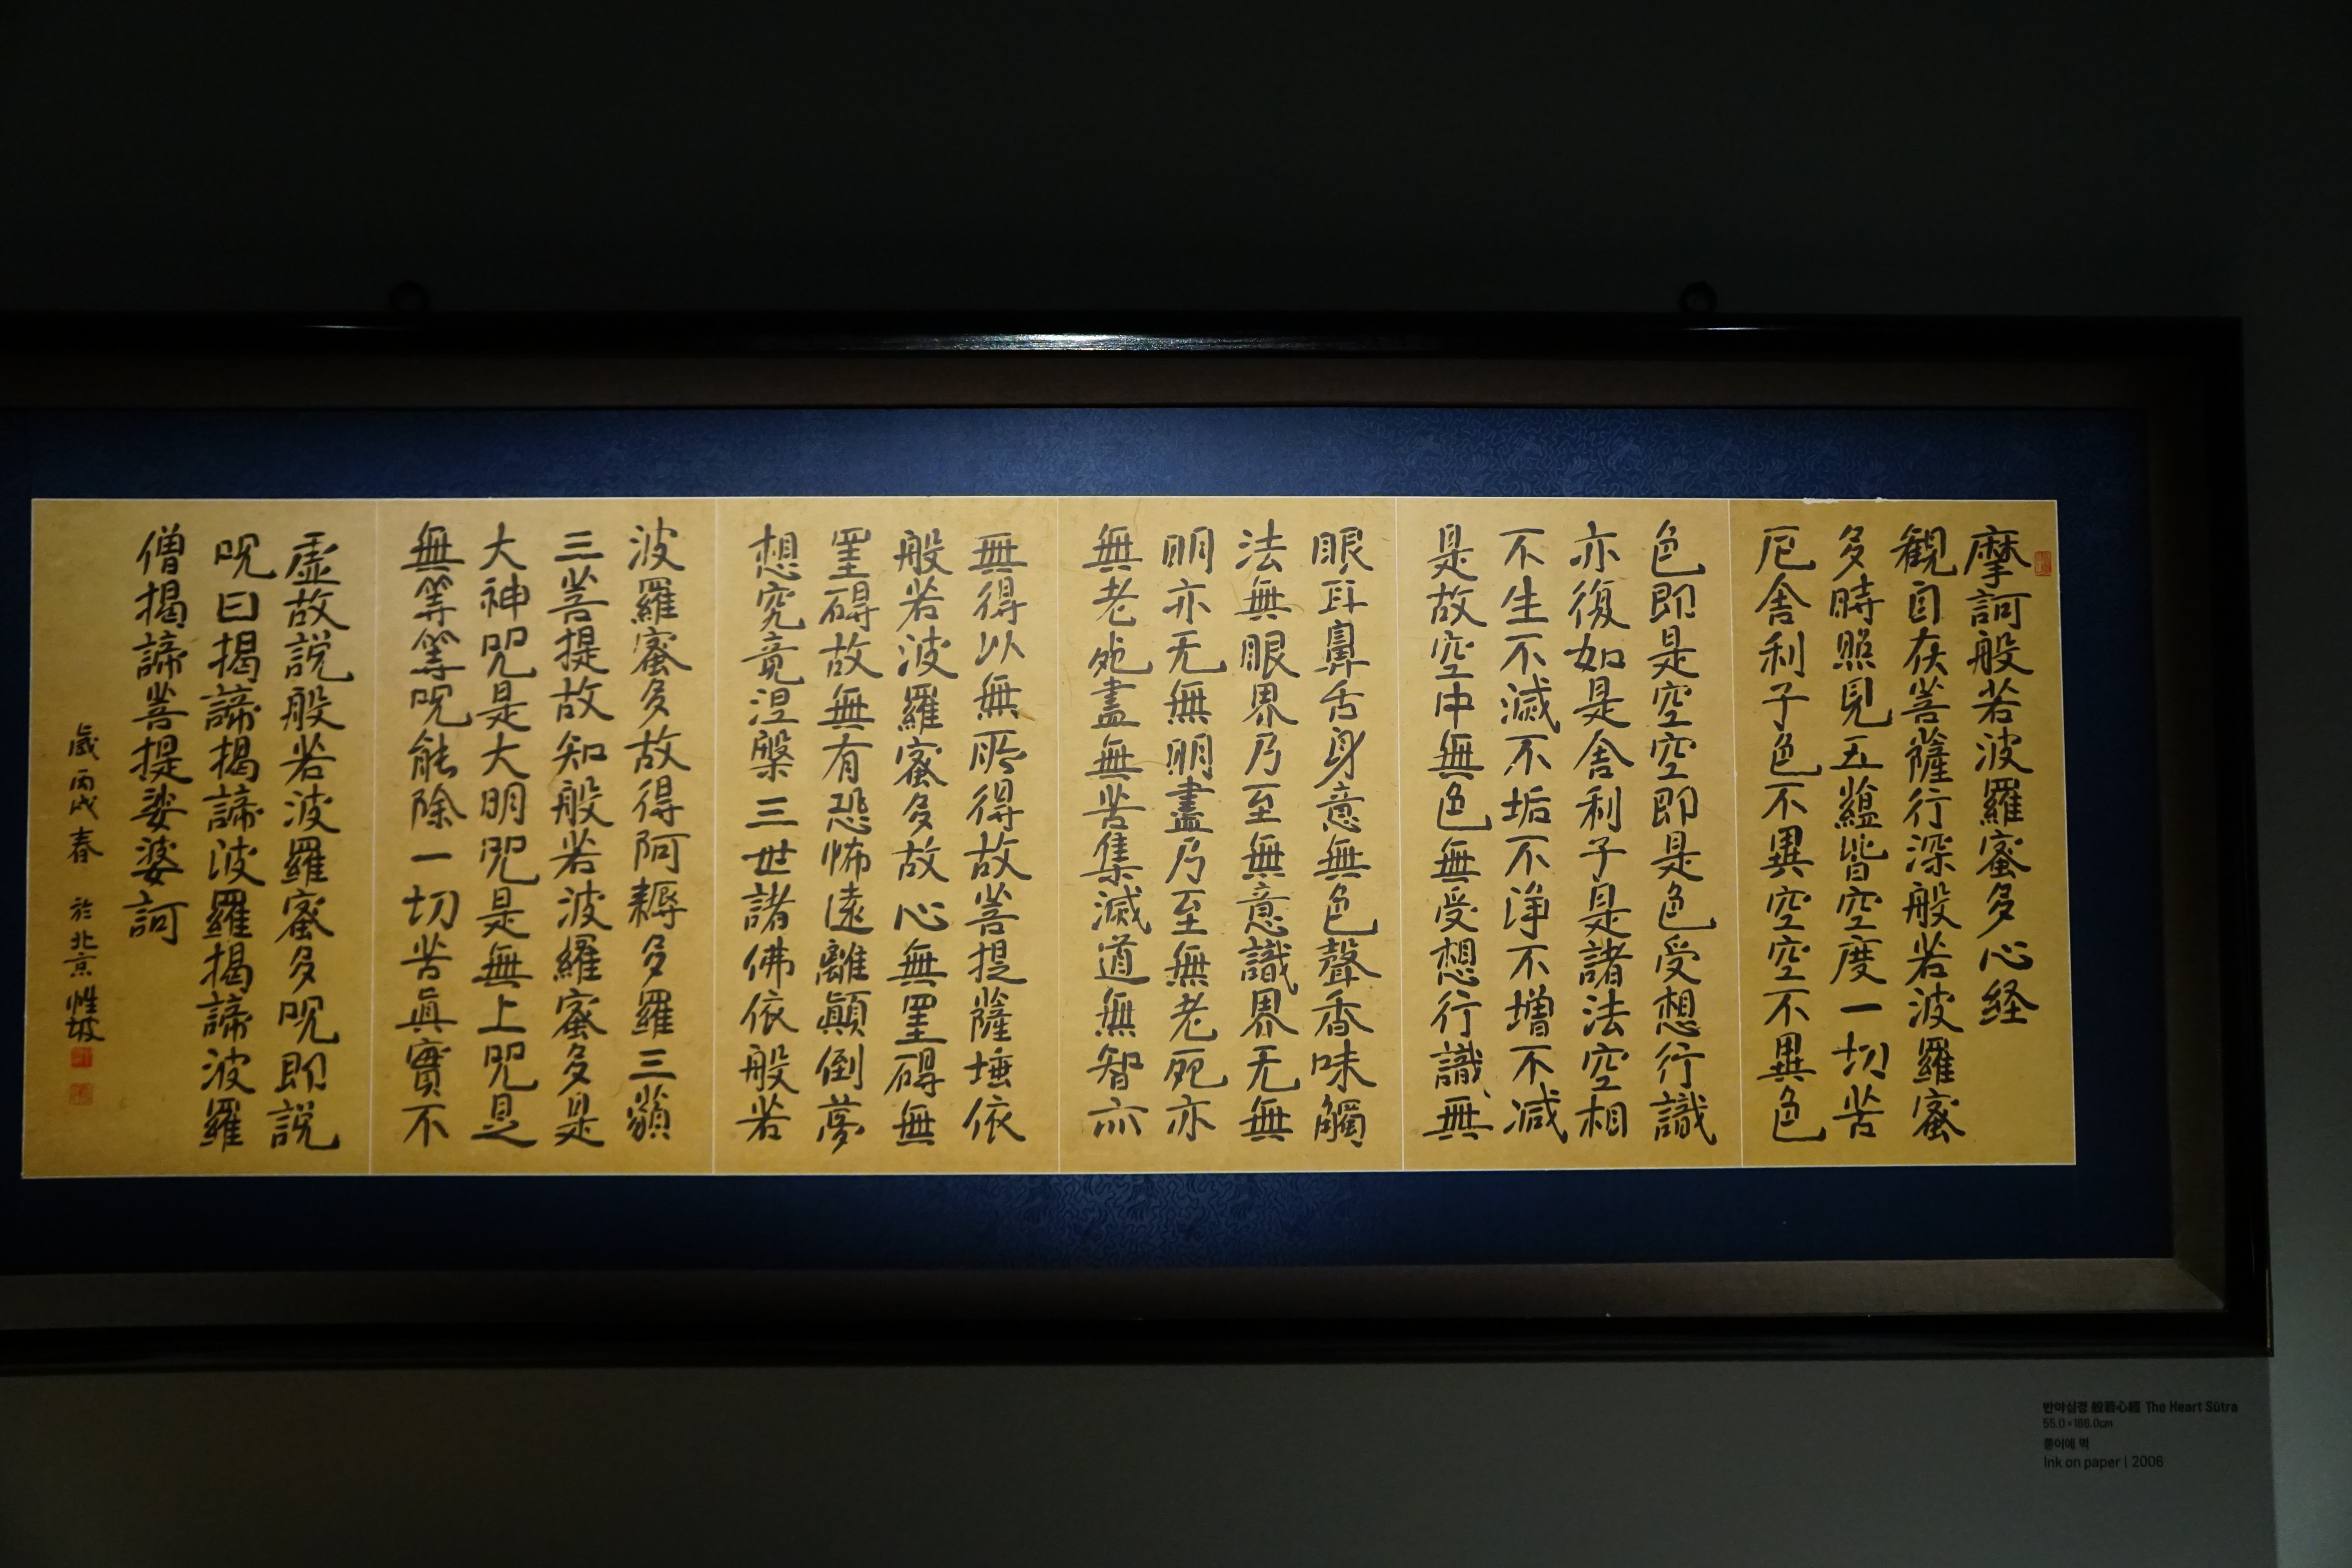 摩訶般若波羅蜜多心経
観自在菩薩行深般若波羅蜜
多時照見五蘊皆空度一切苦
厄舎利子色不異空空不異色
色即是空空即是色受想行識
亦復如是舎利子是諸法空相
不生不滅不垢不浄不増不減
是故空中無色無受想行識無
眼耳鼻舌身意無色聲香味觸
法無眼界乃至無意識界无無
明亦无無明盡乃至無老死亦
無老死盡無苦集滅道無智亦
無得以無所得故菩提薩埵依
般若波羅蜜多故心無罣碍無
罣碍故無有恐怖遠離顛倒夢
想究竟涅槃三世諸佛依般若
波羅蜜多故得阿耨多羅三藐
三菩提故知般若波羅蜜多是
大神咒是大明咒是無上咒是
無等等呪能除一切苦眞實不
虚故説般若波羅蜜多呪即説
呪曰揭諦揭諦波羅揭諦波羅
僧揭諦菩提娑婆訶
歲丙戌春 於北京 惟坡
반야심경 般若心經 The Heart Sūtra
55.0×166.0cm
종이에 먹
Ink on paper | 2006